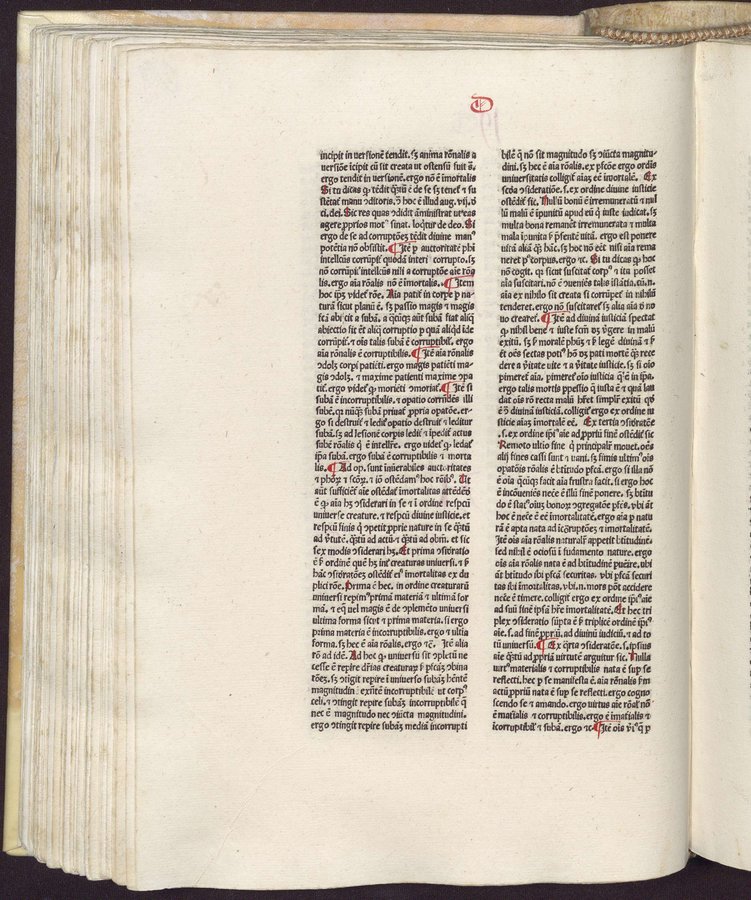 D
incipit in versionē tendit. sꝫ anima rōnalis a
versiōe īcipit cū sit creata ut ostensū fuit ā.
ergo tendit in versionē. ergo nō ē īmortalis
Si tu dicas ꝙ tēdit q̄tū ē de se sꝫ tenet᷑ ⁊ su
stētat᷑ manu ↄditoris. ꝟ hoc ē illud aug. vij. d̄
ci. dei. Sic res quas ↄdidit āministrat ut eas
agere ꝓprios mot᷒ sinat. loq̄tur de deo. Si
ergo de se ad corruptōeꝫ tēdit divine man᷒
potētia nō obsistit. ¶ Itē ꝑ auctoritatē phi
intellc̄us corrūpit᷑ quodā interi᷒ corrupto. sꝫ
nō corrūpit᷑ ītellc̄us nisi a corruptōe aīe rōa
lis. ergo aīa rōnalis nō ē īmortalis. ¶ Item
hoc ip̄ꝫ videt᷑ rōe. Aīa patit᷑ in corꝑe ꝑ na
turā sicut planū ē. sꝫ passio magis ⁊ magis
fc̄ā abijcit a subā. a q̄cūqꝫ aūt subā fiat aliq̄
abiectio sit ēt aliq̄ corruptio ꝑ quā aliq̄d īde
corrūpit᷑. ⁊ oīs talis subā ē corruptibil̄. ergo
aīa rōnalis ē corruptibilis. ¶ Itē aīa rōnalis
ↄdolꝫ corpi patiēti. ergo magis patiēti ma-
gis ↄdolꝫ. ⁊ maxime patienti maxime ↄpa
tit᷑. ergo videt᷑ ꝙ moriēti ↄmoriat᷑. ¶ Itē si
subā ē incorruptibilis. ⁊ oꝑatio corrn̄dēs illi
subē. qꝫ nūcqꝫ subā privat᷑ ꝓpria oꝑatōe. er-
go si destruit᷑ ⁊ ledit᷑ oꝑatio destruit᷑ ⁊ leditur
subā. sꝫ ad lesionē corpis ledit᷑ ⁊ īpedit᷑ actus
sube rōnalis q̄ ē intell̄re. ergo videt᷑ ꝙ ledat᷑
ip̄a subā. ergo subā ē corruptibilis ⁊ morta
lis. ¶ Ad op. sunt īnūerabiles auctoritates
⁊ ph̄oꝝ ⁊ sc̄oꝝ. ⁊ iō ostēdam᷒ hoc rōib᷒. Ut
aūt sufficiēt᷑ aīe ostēdat᷑ īmortalitas attēdēs
ē ꝙ aīa hꝫ ↄsiderari in se ⁊ ī ordine respc̄u
universe creature. ⁊ respc̄u divine iusticie. et
respc̄u finis q̄ ↄpetit ꝓprie nature in se q̄tū
ad v̄tutē. q̄tū ad actū ⁊ q̄tū ad obm̄. et sic
sex modis ↄsiderari hꝫ. Et prima ↄsid̄atio
ē ꝑ ordinē quē hꝫ int᷑ creaturas universi. ⁊ ꝑ
hāc ↄsid̄atōeꝫ ostēdit᷑ ei᷒ īmortalitas ex du
plici rōe. Prima ē hec. in ordine creaturarū
universi reꝑim᷒ prima materiā ⁊ ultimā for
mā. ⁊ eq̄ vel magis ē de ↄplemēto universi
ultima forma sicut ⁊ prima materia. si ergo
prima materia ē incorruptibilis. ergo ⁊ ultīa
forma. sꝫ hec ē aīa rōalis. ergo ⁊c̄. Itē alia
rō ad idē. Ad hoc ꝙ universū sit ↄpletū ne
cesse ē reꝑire dr̄īas creaturaꝝ ꝑ pͦcāꝫ ↄbina
tōeꝫ. sꝫ ↄtigit reꝑire ī universo subāꝫ hēntē
magnitudinē existēntē incorruptibilē ut corp᷒
celi. ⁊ ↄtingit reꝑire subāꝫ incorruptibilē q̄
nec ē magnitudo nec ↄiūcta magnitudini.
ergo ↄtingit reꝑire subāꝫ mediā incorrupti
bilē q̄ nō sit magnitudo sꝫ ↄiūcta magnitu-
dini. sꝫ hec ē aīa rōalis. ex pfc̄ōe ergo ordīs
universitatis colligit᷑ aīaꝫ eē īmortalē. Ex
sc̄da ↄsideratiōe. s. ex ordine divine iusticie
ostēdit᷑ sic. Nullū bonū ē irremuneratū ⁊ nul
lū malū ē īpunitū apud eū q̄ iuste iudicat. sꝫ
multa bona remanēt irremunerata ⁊ multa
mala īpunita ꝑ pn̄sentē vitā. ergo est ponere
vitā aliā q̄ꝫ hāc. sꝫ hoc nō eēt nisi aīa rema
neret pͦ corpus. ergo ⁊c̄. Si tu dicas ꝙ hoc
nō cogit. qꝫ sicut suscitat᷑ corp᷒ ⁊ ita posset
aīa suscitari. nō ē ↄveniēs talis illatio. cū. n.
aīa ex nihilo sit creata si corrūpet᷑ in nihilū
tenderet. ergo nō suscitaret᷑ sꝫ alia aīa d̄ no
vo crearet᷑. ¶ Itē ad divinā iusticiā spectat
ꝙ nihil bene ⁊ iuste fc̄m dꝫ v̄gere in malū
exitū. sꝫ ꝑ moralē ph̄iāꝫ ⁊ ꝑ legē divinā ⁊ ꝑ
ēt oēs sectas poti᷒ hō dꝫ pati mortē q̄ꝫ rece
dere a v̄itate vite ⁊ a v̄itate iusticie. sꝫ si oīo
pimeret᷑ aīa. pimeret᷑ oīo iusticia q̄ ē in ip̄a.
ergo talis mortis ꝑpessio q̄ iusta ē ⁊ quā lau
dat oīs rō recta malū h̄ret simpl᷑r exitū qd̄
ē ꝟ divinā iusticiā. colligit᷑ ergo ex ordine iu
sticie aīaꝫ īmortalē eē. Ex tertia ↄsid̄atōe
. s. ex ordine ip̄i᷒ aīe ad ꝓpriū finē ostēdit᷑ sic
Remoto ultīo fine q̄ principal᷑r movet. oēs
alij fines cassi sunt ⁊ vani. sꝫ finis ultim᷒ oīs
oꝑatōis rōalis ē btītudo pfc̄ā. ergo si illa nō
ē oīa q̄cūqꝫ facit aīa frustra facit. si ergo hoc
ē incōueniēs nec̄e ē illū finē ponere. sꝫ btītu
do ē stat᷒ oīuꝫ bonoꝝ ↄgregatōe pfc̄ūs. ubi aūt
hoc nō ē nec ē īmortalitatē. ergo aīa ꝑ natu
rā ē apta nata ad īcorruptōeꝫ ⁊ īmortalitatē.
Itē oīs aīa rōalis natural᷑r appetit btītudinē.
sed nihil ē ociosū ī fundamēto nature. ergo
oīs aīa rōalis nata ē ad btītudinē ꝑuēire. ubi
aūt btītudo ibi pfc̄ā securitas. ubi pfc̄ā securi
tas ibi īmortalitas. ubi. n. mors pōt accidere
nec̄e ē timere. colligit᷑ ergo ex ordine ip̄i᷒ aīe
ad suū finē ip̄sā h̄re īmortalitatē. Et hec tri
plex ↄsideratio sūpta ē ꝑ triplicē ordinē ip̄i᷒
aīe. s. ad finē ꝓprīū. ad divinū iudiciū. ⁊ ad to
tū universū. ¶ Ex q̄rta ↄsideratōe. s. ipsius
aīe q̄tū ad ꝓpriā virtutē arguitur sic. Nulla
virt᷒ materialis ⁊ corruptibilis nata ē sup se
reflecti. hec ꝑ se manifesta ē. aīa rōnalis ẜm
actū ꝓpriū nata ē sup se reflecti. ergo cogno
scendo se ⁊ amando. ergo virtus aīe rōal̄ nō
ē māīalis ⁊ corruptibilis. ergo ē īmāīalis ⁊
īcorruptibil̄ ⁊ subā. ergo ⁊c̄ ¶ Itē oīs v̄t᷒ q̄ ꝑ